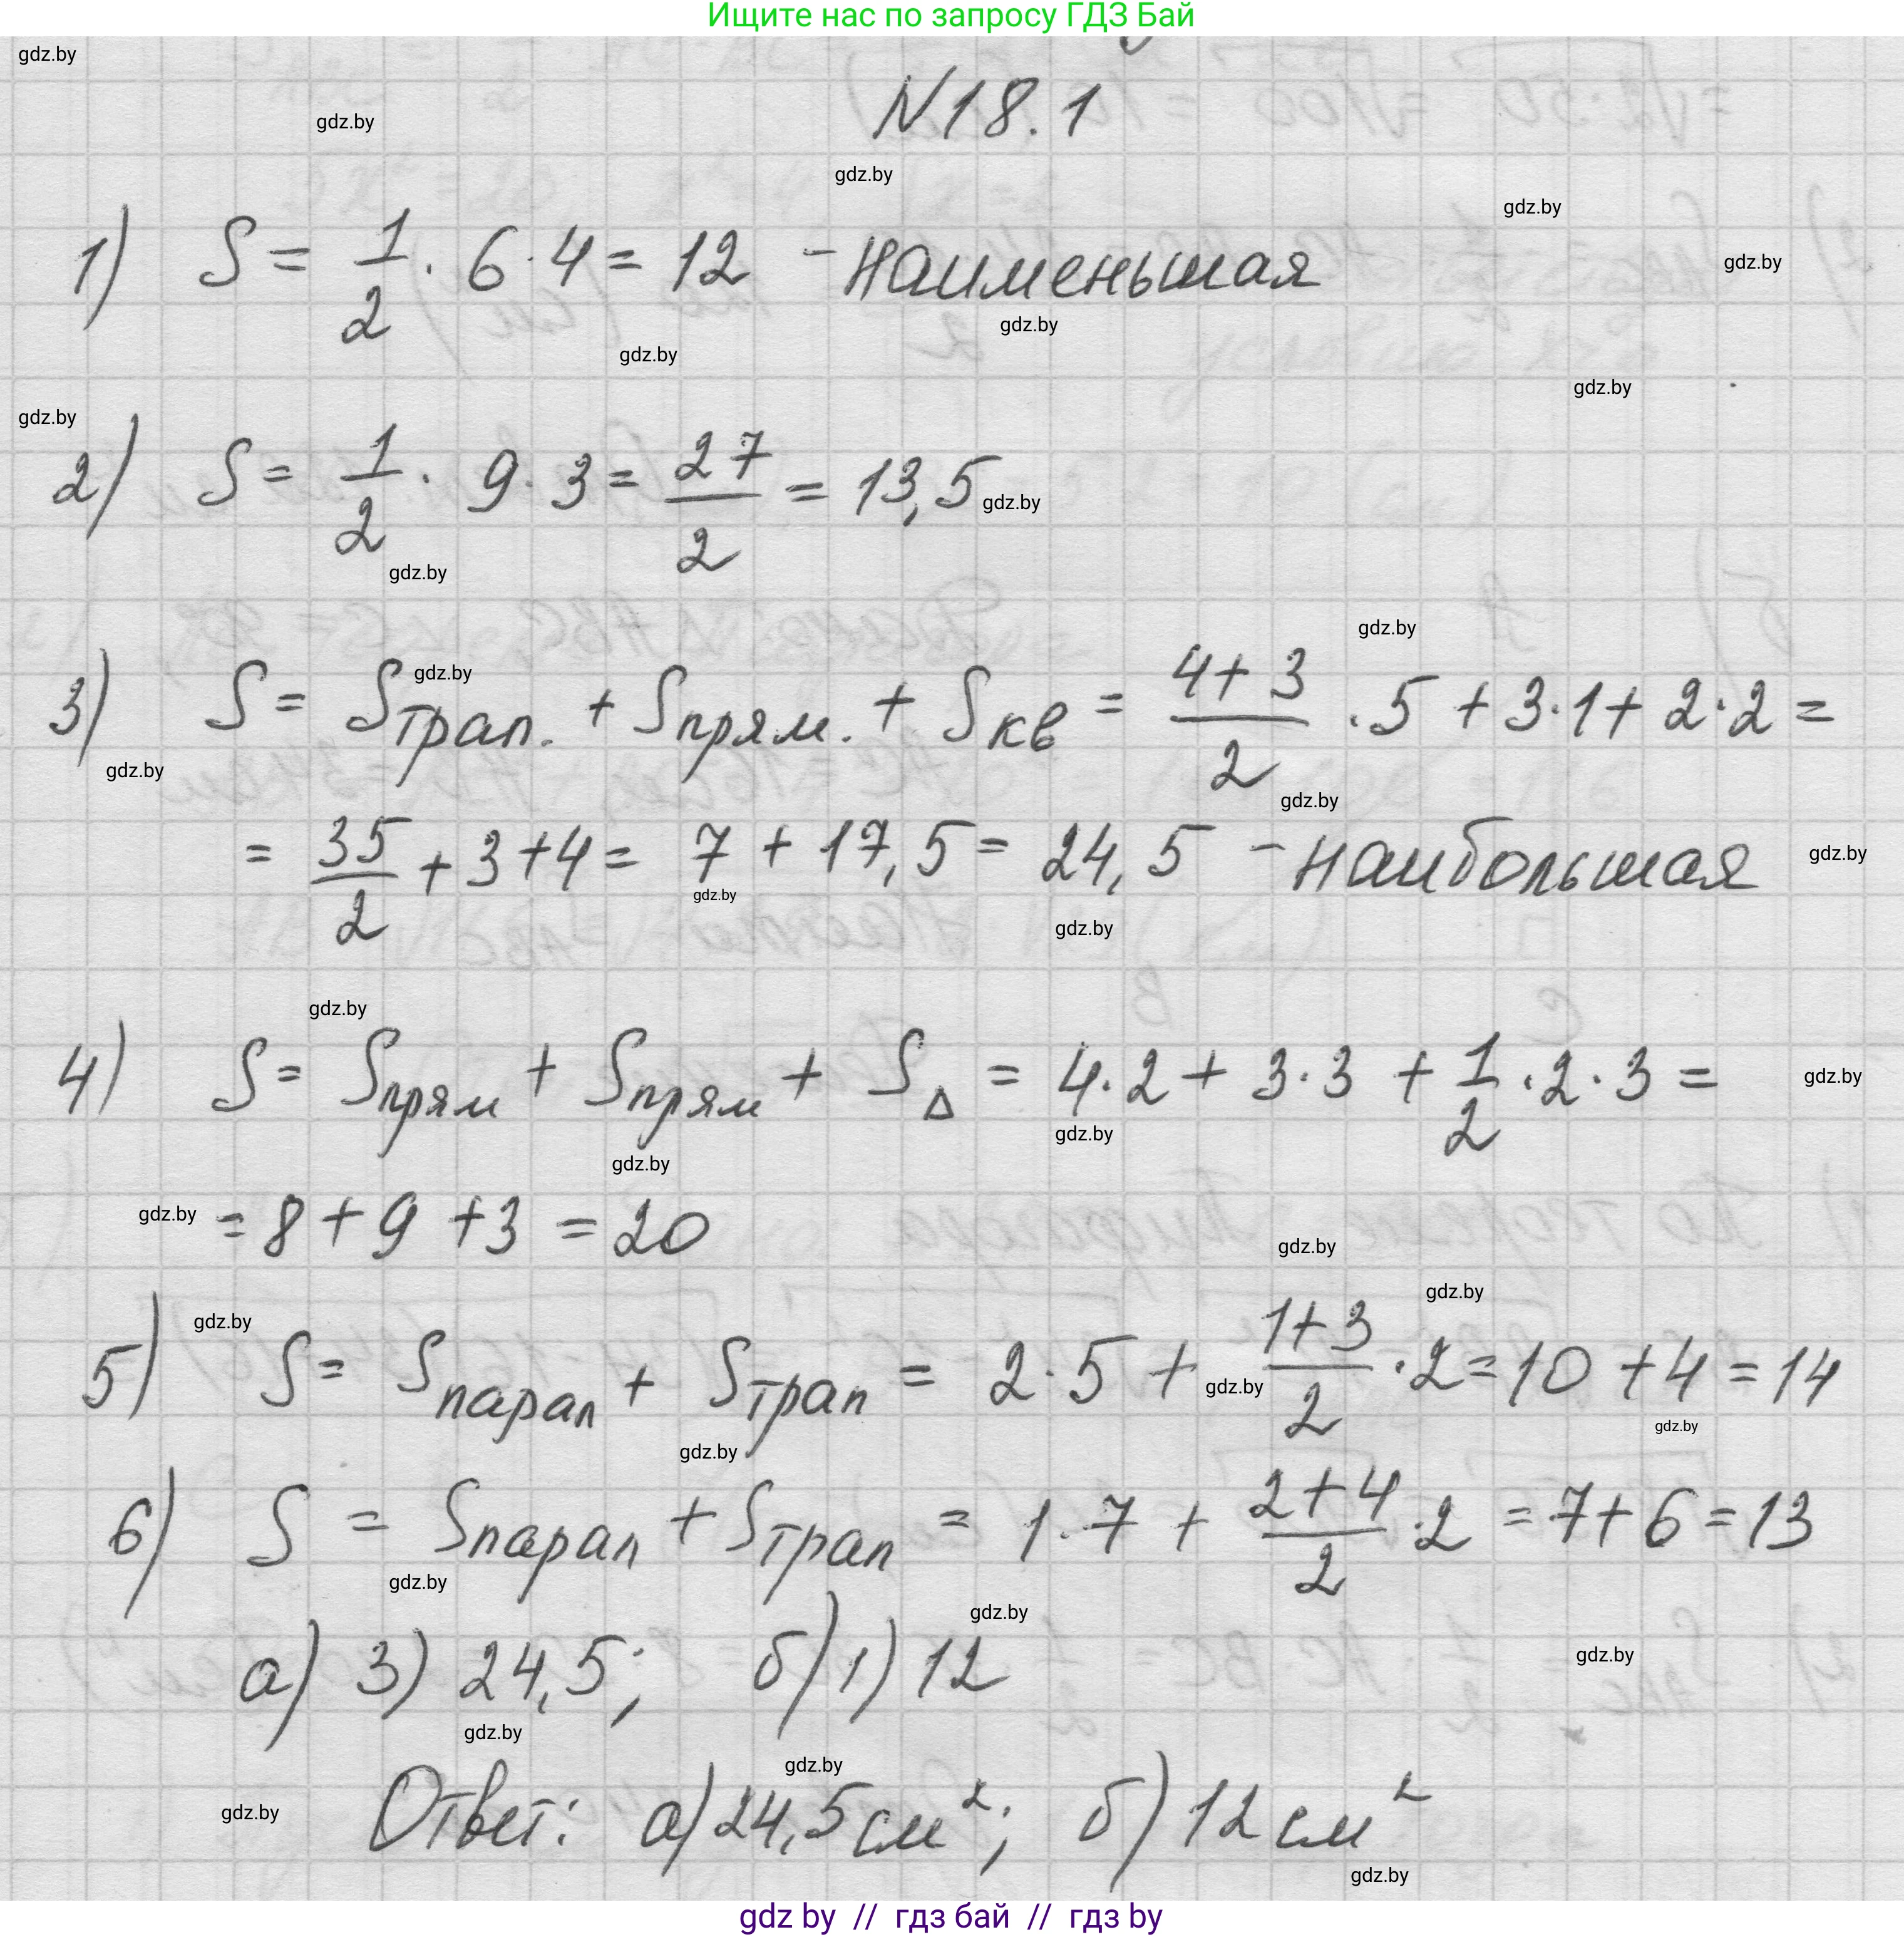 Ищите нас по запросу ГДЗ Бай
N18.1
1) S = 1/2 · 6 · 4 = 12 - наименьшая
2) S = 1/2 · 9 · 3 = 27/2 = 13,5
3) S = Sтрап. + Sпрям. + Sкв = (4+3)/2 · 5 + 3·1 + 2·2 =
= 35/2 + 3 + 4 = 7 + 17,5 = 24,5 - наибольшая
4) S = Sпрям + Sпрям + S△ = 4·2 + 3·3 + 1/2 · 2 · 3 =
= 8 + 9 + 3 = 20
5) S = Sпарал + Sтрап = 2·5 + (1+3)/2 · 2 = 10 + 4 = 14
6) S = Sпарал + Sтрап = 1·7 + (2+4)/2 · 2 = 7 + 6 = 13
а) 3) 24,5; б) 1) 12
Ответ: а) 24,5 см²; б) 12 см²
gdz by // гдз бай // гдз by